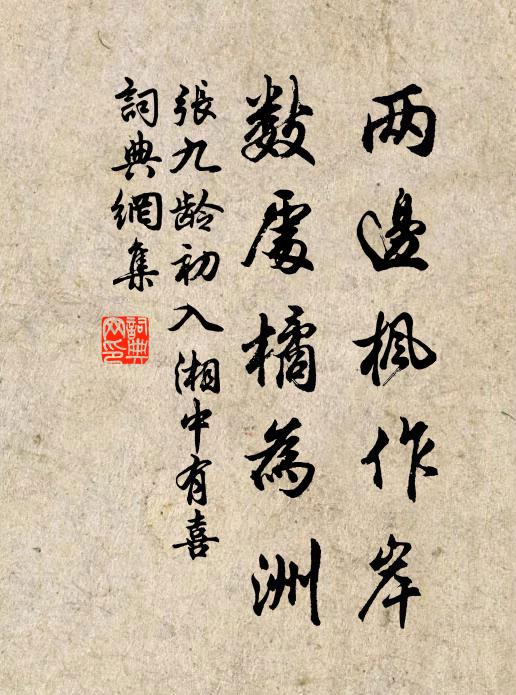 两邊楓作岸
數處橘為洲
張九龄初入湘中有喜
詞典網集
詞典
网印